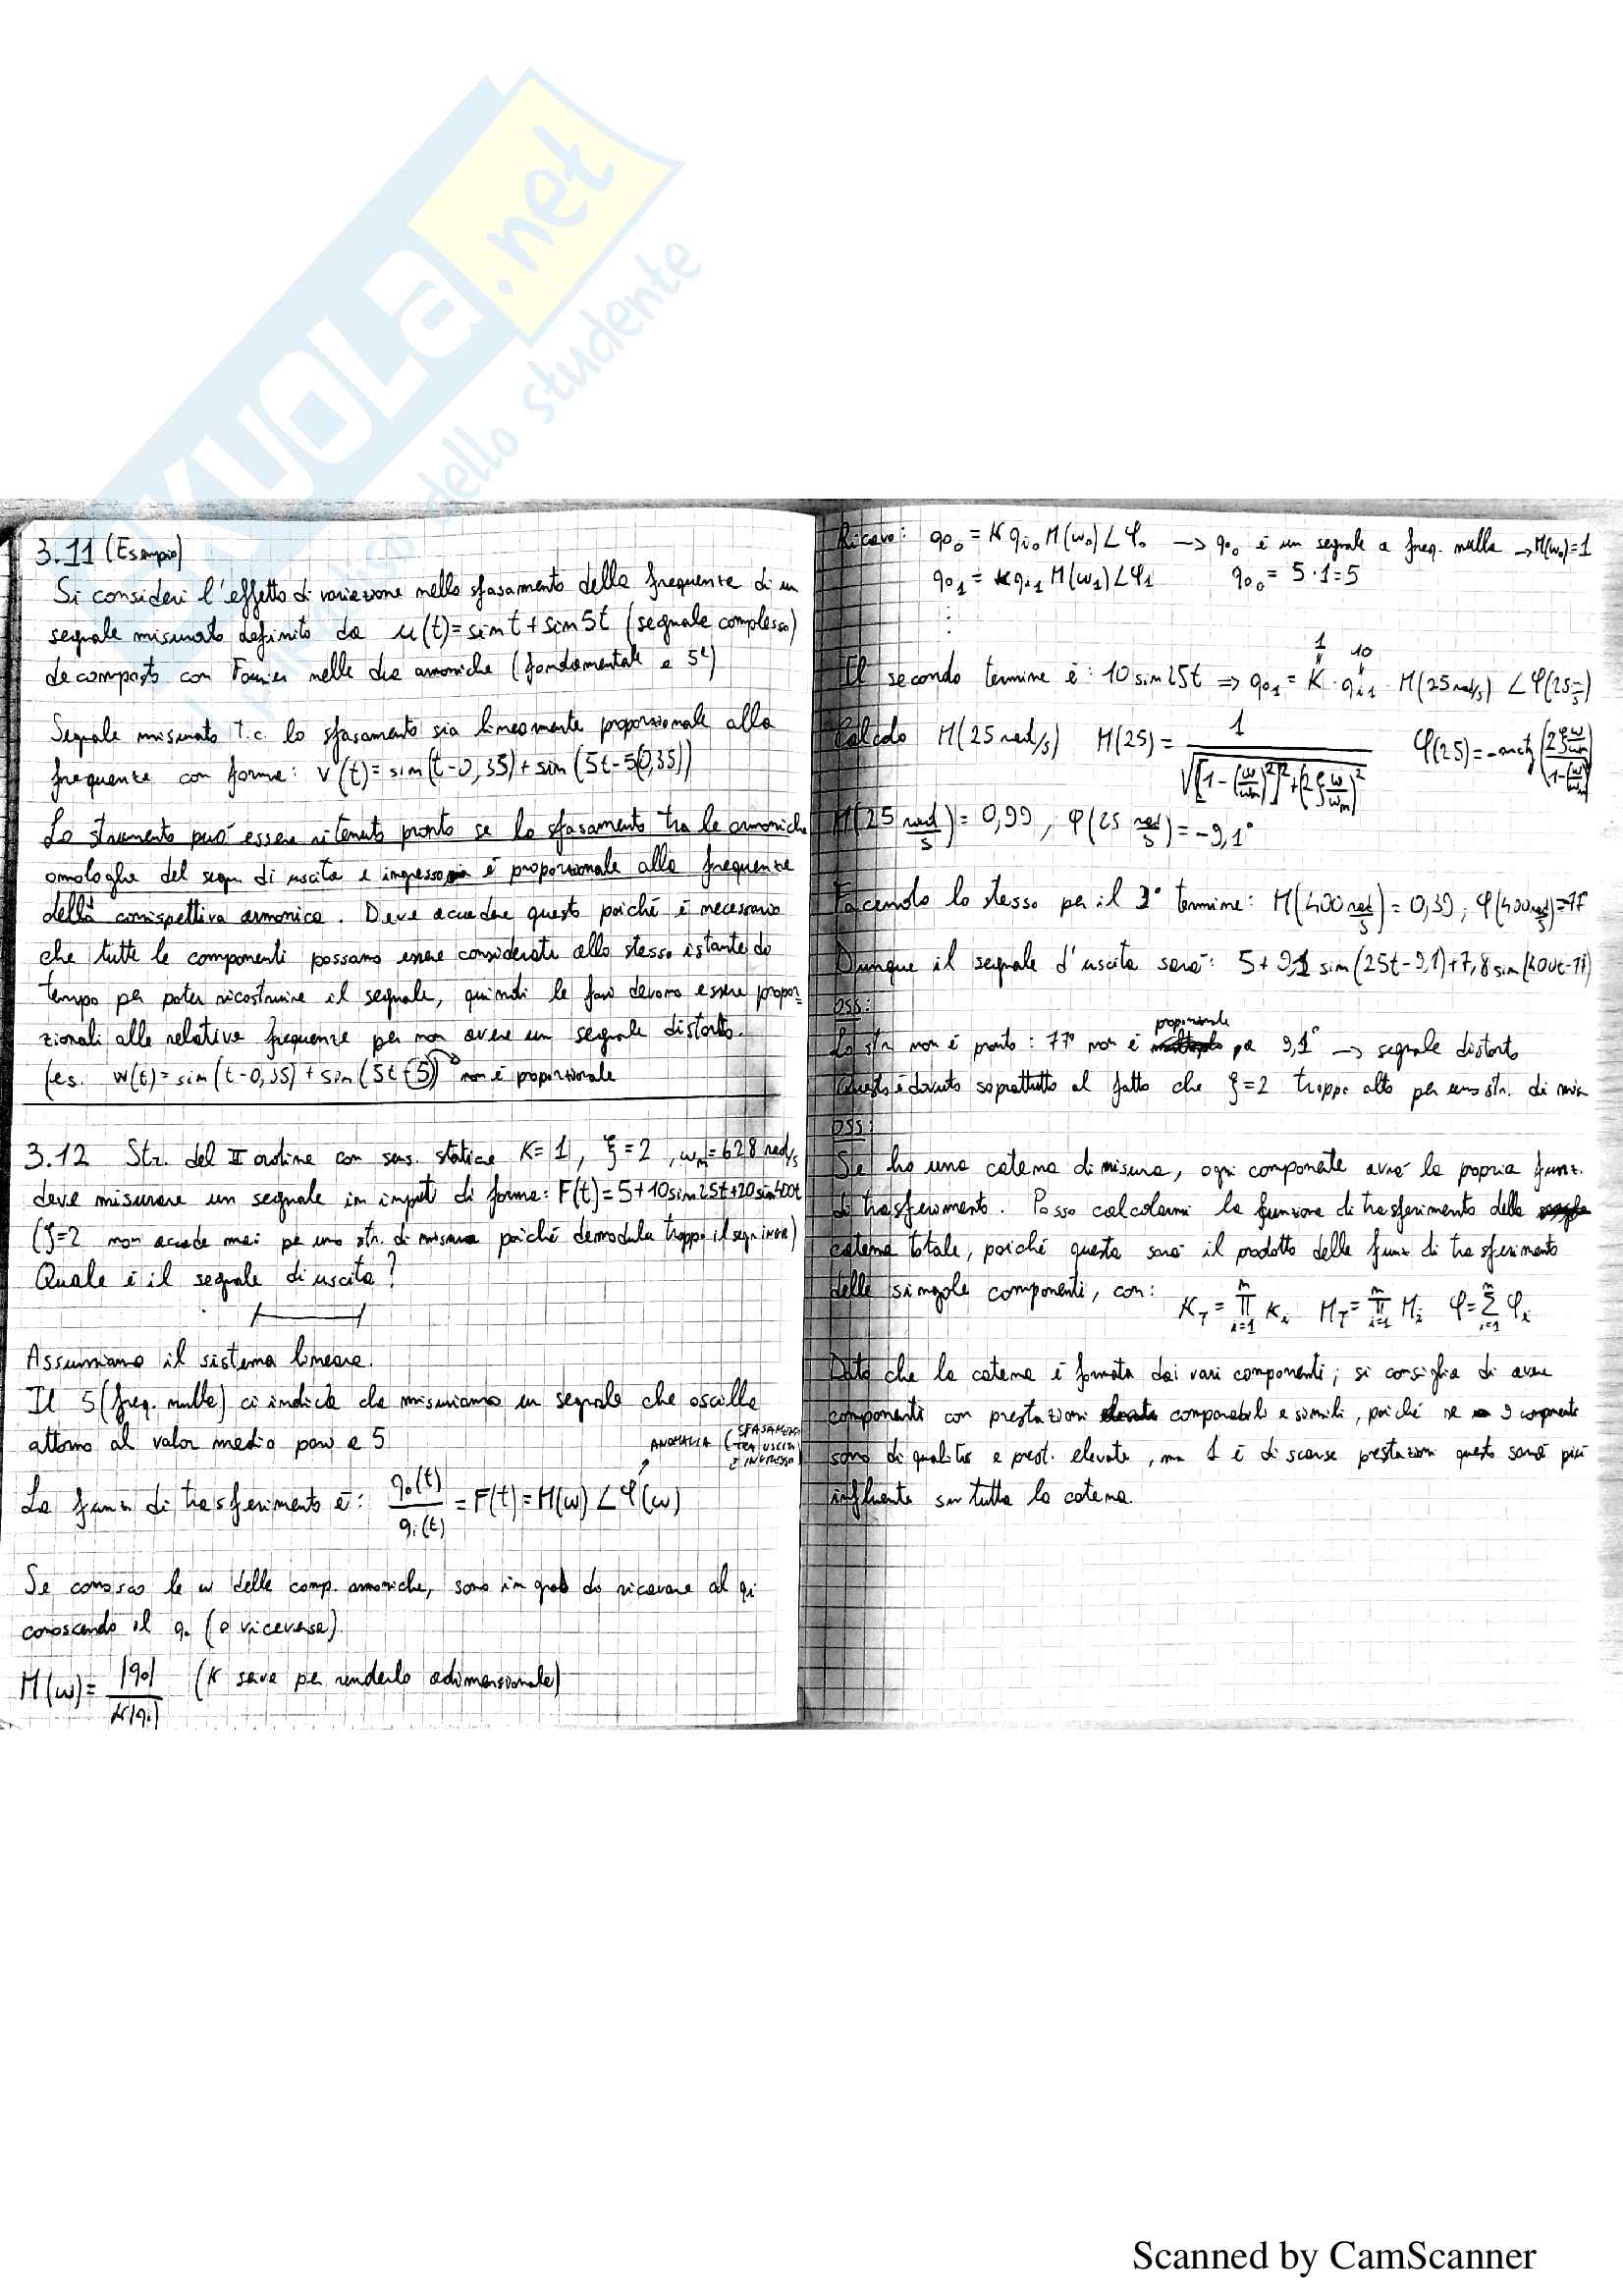 SKUOLA.net
dello studente
3.11 (Esempio)
Si consideri l'effetto di variazione nello sfasamento della frequenza di un
segnale misurato definito da u(t)=sin t + sin 5t (segnale complesso)
decomposto con Fourier nelle due armoniche (fondamentale e 5ª)
Segnale misurato T.c. lo sfasamento sia linearmente proporzionale alla
frequenza con forma: v(t)=sin(t-0,35)+sin(5t-5(0,35))
Lo strumento può essere ritenuto pronto se lo sfasamento tra le armoniche
omologhe del segn. di uscita e ingresso è proporzionale alla frequenza
della corrispettiva armonica. Deve accadere questo poiché è necessario
che tutte le componenti possano essere considerate allo stesso istante di
tempo per poter ricostruire il segnale, quindi le fasi devono essere propor-
zionali alle relative frequenze per non avere un segnale distorto.
(es. w(t)=sin(t-0,35)+sin(5t-5) non è proporzionale
3.12 Str. del II ordine con sens. statica K=1, ξ=2, ωn=628 rad/s
deve misurare un segnale in input di forma: F(t)=5+10sin25t+20sin400t
(ξ=2 non accade mai per uno str. di misura poiché demodula troppo il segn.)
Quale è il segnale di uscita?
Assumiamo il sistema lineare.
Il 5 (freq. nulla) ci indica che misuriamo un segnale che oscilla
attorno al valor medio pari a 5
ANOMALIA (SFASAMENTO TRA USCITA E INGRESSO)
La funz di trasferimento è: qo(t)/qi(t) = F(t) = M(ω) ∠ φ(ω)
Se conosco le ω delle comp. armoniche, sono in grado di ricavare al qi
conoscendo il qo (o viceversa)
M(ω)= |qo|/K|qi| (K serve per renderlo adimensionale)
Ricavo: qo₀ = K qi₀ M(ω₀) ∠φ₀ → qo₀ è un segnale a freq. nulla → M(ω₀)=1
qo₁ = K qi₁ M(ω₁) ∠φ₁ qo₀ = 5·1=5
⋮
1 10
Il secondo termine è: 10 sin 25t ⇒ qo₁ = K · qi₁ · M(25 rad/s) ∠ φ(25 )
Calcolo M(25 rad/s) M(25) = 1/√([1-(ω/ωn)²]²+(2ξω/ωn)²) φ(25)=-arctg(2ξω/ωn / 1-(ω/ωn)²)
M(25 rad/s) = 0,99, φ(25 rad/s) = -9,1°
Facendo lo stesso per il 3° termine: M(400 rad/s) = 0,39; φ(400 rad/s)=77
Dunque il segnale d'uscita sarà: 5+9,1 sin(25t-9,1)+7,8 sin(400t-77)
OSS:
Lo str. non è pronto: 77° non è proporzionale per 9,1° → segnale distorto
Questo è dovuto soprattutto al fatto che ξ=2 troppo alto per uno str. di misura
OSS:
Se ho una catena di misura, ogni componente avrà la propria funz.
di trasferimento. Posso calcolarmi la funzione di trasferimento della
catena totale, poiché questa sarà il prodotto delle funz di trasferimento
delle singole componenti, con: K_T = ∏ᵢ₌₁ⁿ Kᵢ M_T = ∏ᵢ₌₁ⁿ Mᵢ φ = ∑ᵢ₌₁ⁿ φᵢ
Dato che la catena è formata dai vari componenti; si consiglia di avere
componenti con prestazioni comparabili e simili, poiché se 9 componenti
sono di qualità e prest. elevate, ma 1 è di scarse prestazioni questo sarà più
influente su tutta la catena.
Scanned by CamScanner